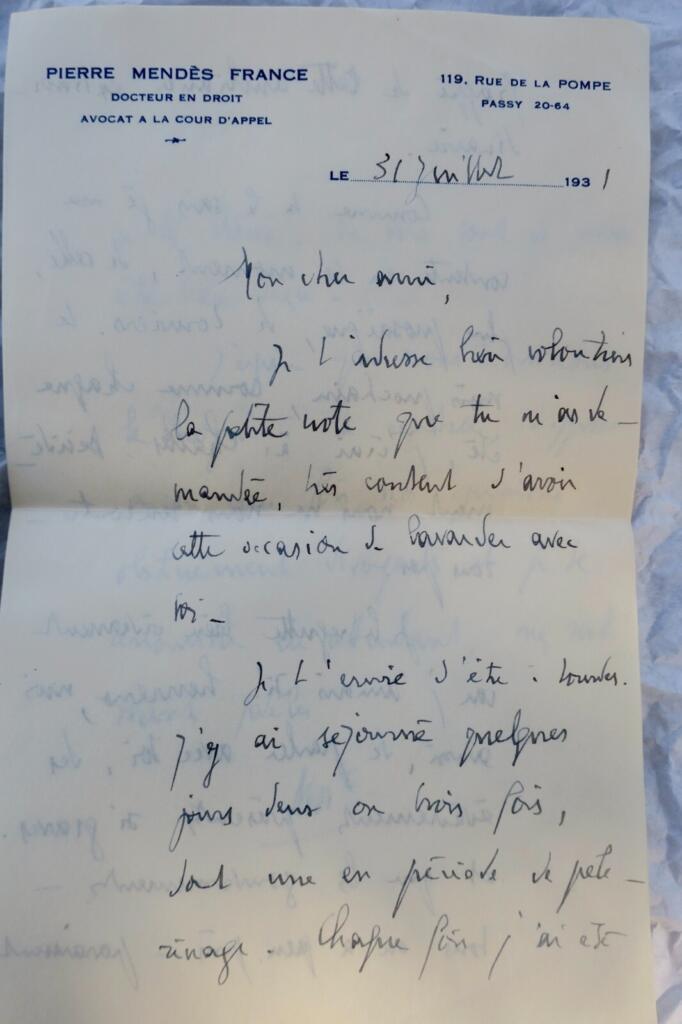 PIERRE MENDÈS FRANCE
DOCTEUR EN DROIT
AVOCAT A LA COUR D'APPEL
119, RUE DE LA POMPE
PASSY 20-64
LE 31 Juillet 1931
Mon cher ami,
Je t'adresse bien volontiers
la petite note que tu m'as de-
mandée, très content d'avoir
cette occasion de bavarder avec
toi -
Je t'envie d'être à Lourdes.
J'y ai séjourné quelques
jours deux ou trois fois,
dont une en période de pèle-
rinage. Chaque fois j'ai été